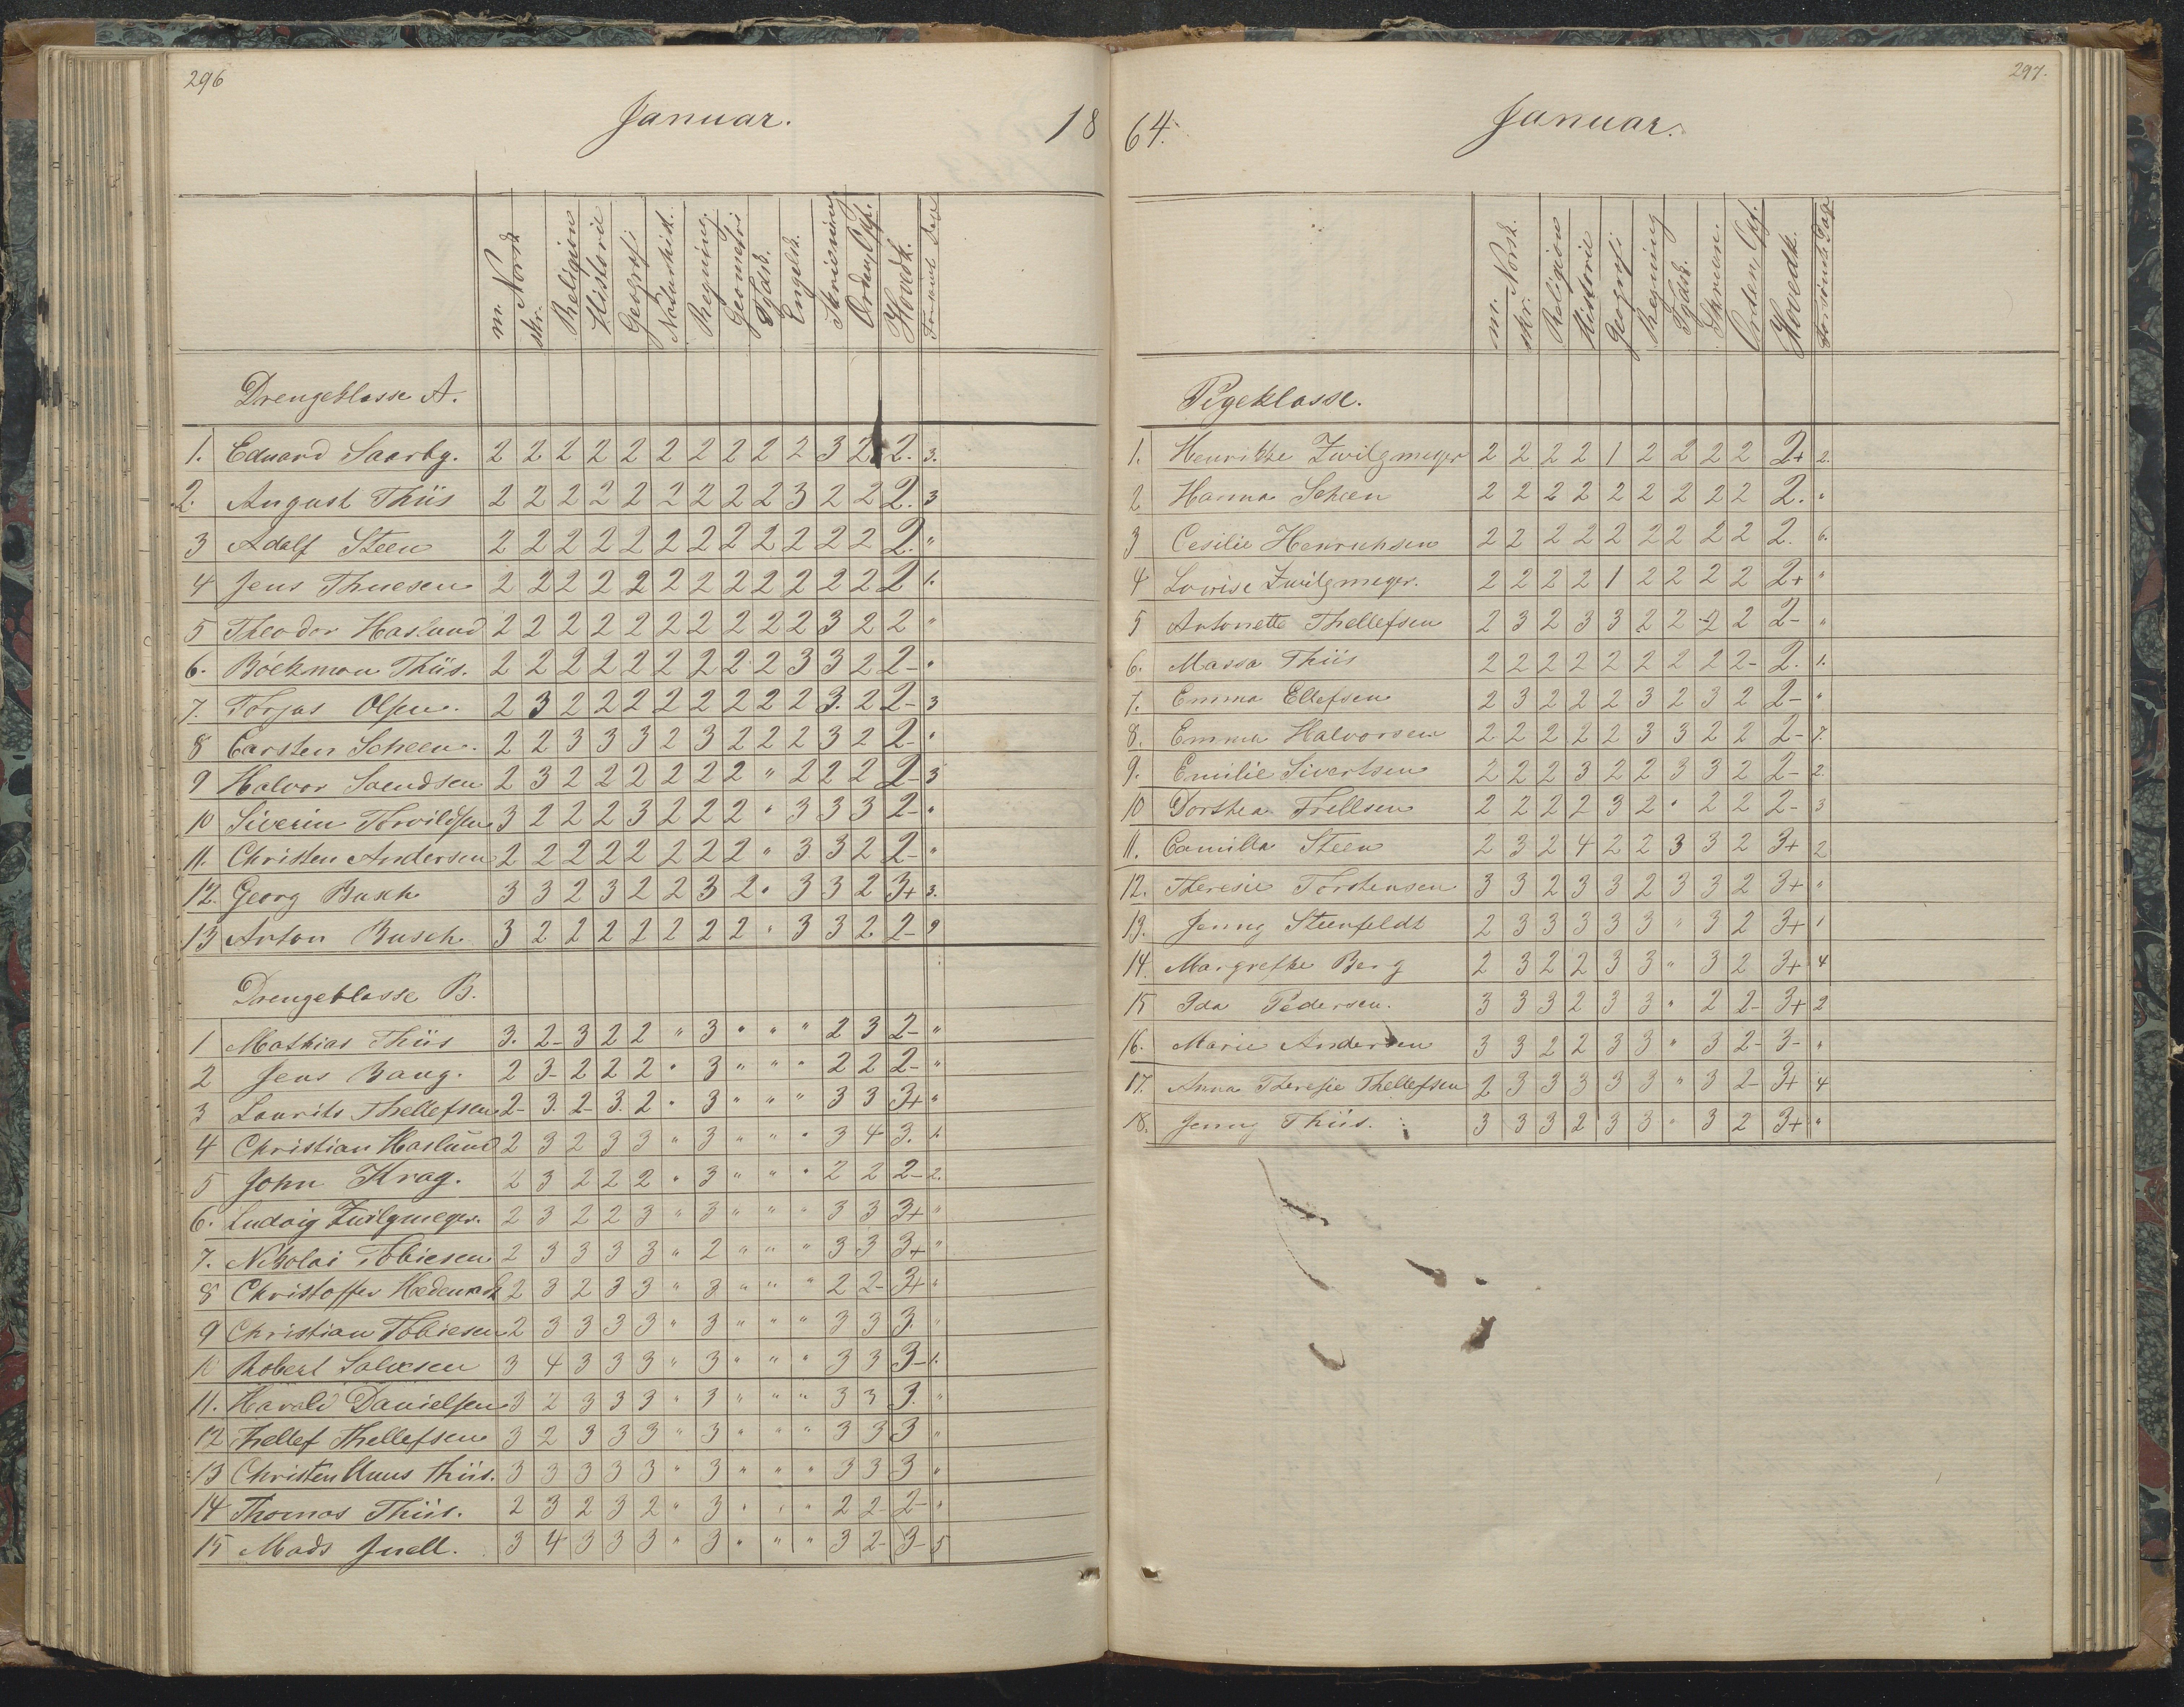 296
Januar. 18
m. Norsk skr. Religion Historie Geografi Naturhist. Regning Geometri Tydsk. Engelsk. Skrivning Orden, Opf. Hovedk.
Drengeklasse A.
1. Eduard Saarby. 2 2 2 2 2 2 2 2 2 2 3 2 2. 3.
2. August Thiis 2 2 2 2 2 2 2 2 2 3 2 2 2. 3
3 Adolf Steen 2 2 2 2 2 2 2 2 2 2 2 2 2. "
4 Jens Thuesen 2 2 2 2 2 2 2 2 2 2 2 2 2 1.
5 Theodor Haslund 2 2 2 2 2 2 2 2 2 2 3 2 2 "
6. Böckman Thiis. 2 2 2 2 2 2 2 2 2 3 3 2 2- "
7. Torjus Olsen. 2 3 2 2 2 2 2 2 2 2 3. 2 2- 3
8 Carsten Scheen. 2 2 3 3 3 2 3 2 2 2 3 2 2- "
9 Halvor Svendsen 2 3 2 2 2 2 2 2 " 2 2 2 2- 3
10 Siverin Torvildsen 3 2 2 2 3 2 2 2 " 3 3 3 2- "
11. Christen Andersen 2 2 2 2 2 2 2 2 " 3 3 2 2- "
12. Georg Busch 3 3 2 3 2 2 3 2 " 3 3 2 3+ 3.
13 Anton Busch 3 2 2 2 2 2 2 2 " 3 3 2 2- 9
Drengeklasse B.
1 Mathias Thiis 3. 2- 3 2 2 " 3 " " " 2 3 2- "
2 Jens Bang. 2 3- 2 2 2 " 3 " " " 2 2 2- "
3 Laurits Thellefsen 2- 3. 2- 3. 2 " 3 " " " 3 3 3+ "
4 Christian Haslund 2 3 2 3 3 " 3 " " " 3 4 3. 1.
5 John Krag. 2 3 2 2 2 " 3 " " " 2 2 2- 2.
6. Ludvig Zwilgmeyer. 2 3 2 2 3 " 3 " " " 3 3 3+ "
7. Nikolai Tobiesen 2 3 3 3 3 " 2 " " " 3 3 3+ "
8 Christoffer 2 3 2 3 3 " 3 " " " 2 2- 3+ "
9 Christian Tobiesen 2 3 3 3 3 " 3 " " " 3 3 3. "
10 Robert Salvesen 3 4 3 3 3 " 3 " " " 3 3 3- 1.
11. Harald Danielsen 3 2 3 3 3 " 3 " " " 3 3 3. "
12 Thellef Thellefsen 3 2 3 3 3 " 3 " " " 3 3 3 "
13 Christen Thiis. 3 3 3 3 3 " 3 " " " 3 3 3 "
14 Thomas Thiis. 2 3 2 3 2 " 3 " " " 2 2- 2- "
15 Mads Juell. 3 4 3 3 3 " 3 " " " 3 2- 3- 5
297.
64. Januar.
m. Norsk. skr. Religion Historie Geografi Regning Tydsk. Skrivn. Orden, Opf. Hovedk. Forsömte Dage
Pigeklasse.
1. Henrikke Zwilgmeyer 2 2 2 2 1 2 2 2 2 2+ 2.
2 Hanna Scheen 2 2 2 2 2 2 2 2 2 2. "
3 Cesilie Henrichsen 2 2 2 2 2 2 2 2 2 2. 6.
4 Lovise Zwilgmeyer. 2 2 2 2 1 2 2 2 2 2+ "
5 Antonette Thellefsen 2 3 2 3 3 2 2 2 2 2- "
6. Massa Thiis 2 2 2 2 2 2 2 2 2- 2. 1.
7. Emma Ellefsen 2 3 2 2 2 3 2 3 2 2- "
8. Emma Halvorsen 2 2 2 2 2 3 3 2 2 2- 7.
9. Emilie Sivertsen 2 2 2 3 2 2 3 3 2 2- 2.
10 Dorthea Frellsen 2 2 2 2 3 2 " 2 2 2- 3
11. Camilla Steen 2 3 2 4 2 2 3 3 2 3+ 2
12. Theresie Torstensen 3 3 2 3 3 2 3 3 2 3+ "
13. Jenny Steenfeldt 2 3 3 3 3 3 " 3 2 3+ 1
14. Margrethe Berg 2 3 2 2 3 3 " 3 2 3+ 4
15 Ida Pedersen. 3 3 3 2 3 3 " 2 2- 3+ 2
16. Marie Andersen 3 3 2 2 3 3 " 3 2- 3- "
17. Anna Theresie Thellefsen 2 3 3 3 3 3 " 3 2- 3+ 4
18. Jenny Thiis. 3 3 3 2 3 3 " 3 2 3+ "